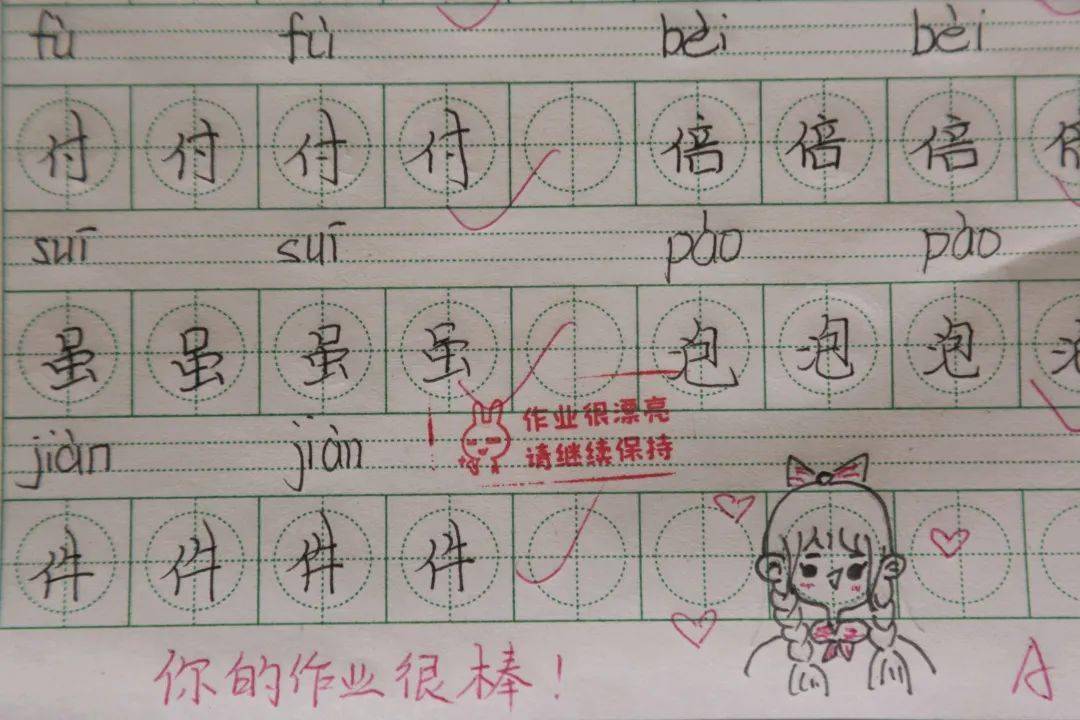 fù fù bèi bèi
付 付 付 付 倍 倍 倍
suī suī pào pào
虽 虽 虽 虽 泡 泡 泡
jiàn jiàn
作业很漂亮
请继续保持
件 件 件 件
你的作业很棒！ A